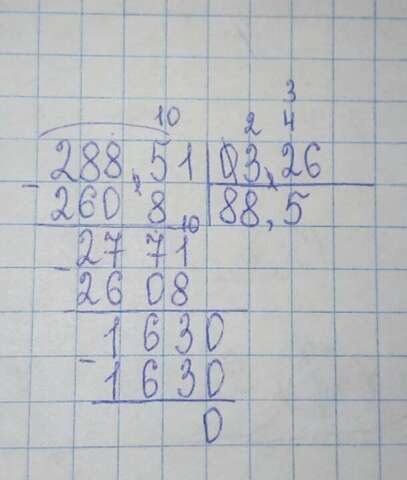 3
10 2 4
288,51 | 03,26
- 260 8 | 88,5
10
- 27 71
26 08
- 1 630
1 630
0